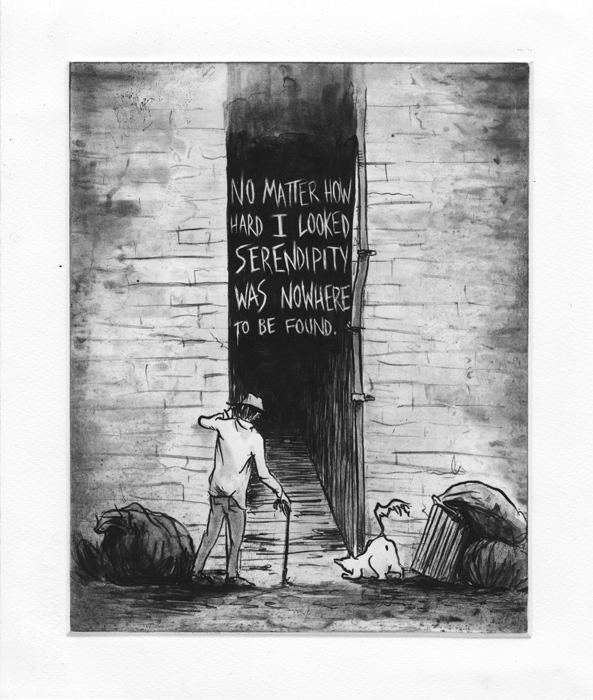 NO MATTER HOW
HARD I LOOKED
SERENDIPITY
WAS NOWHERE
TO BE FOUND.